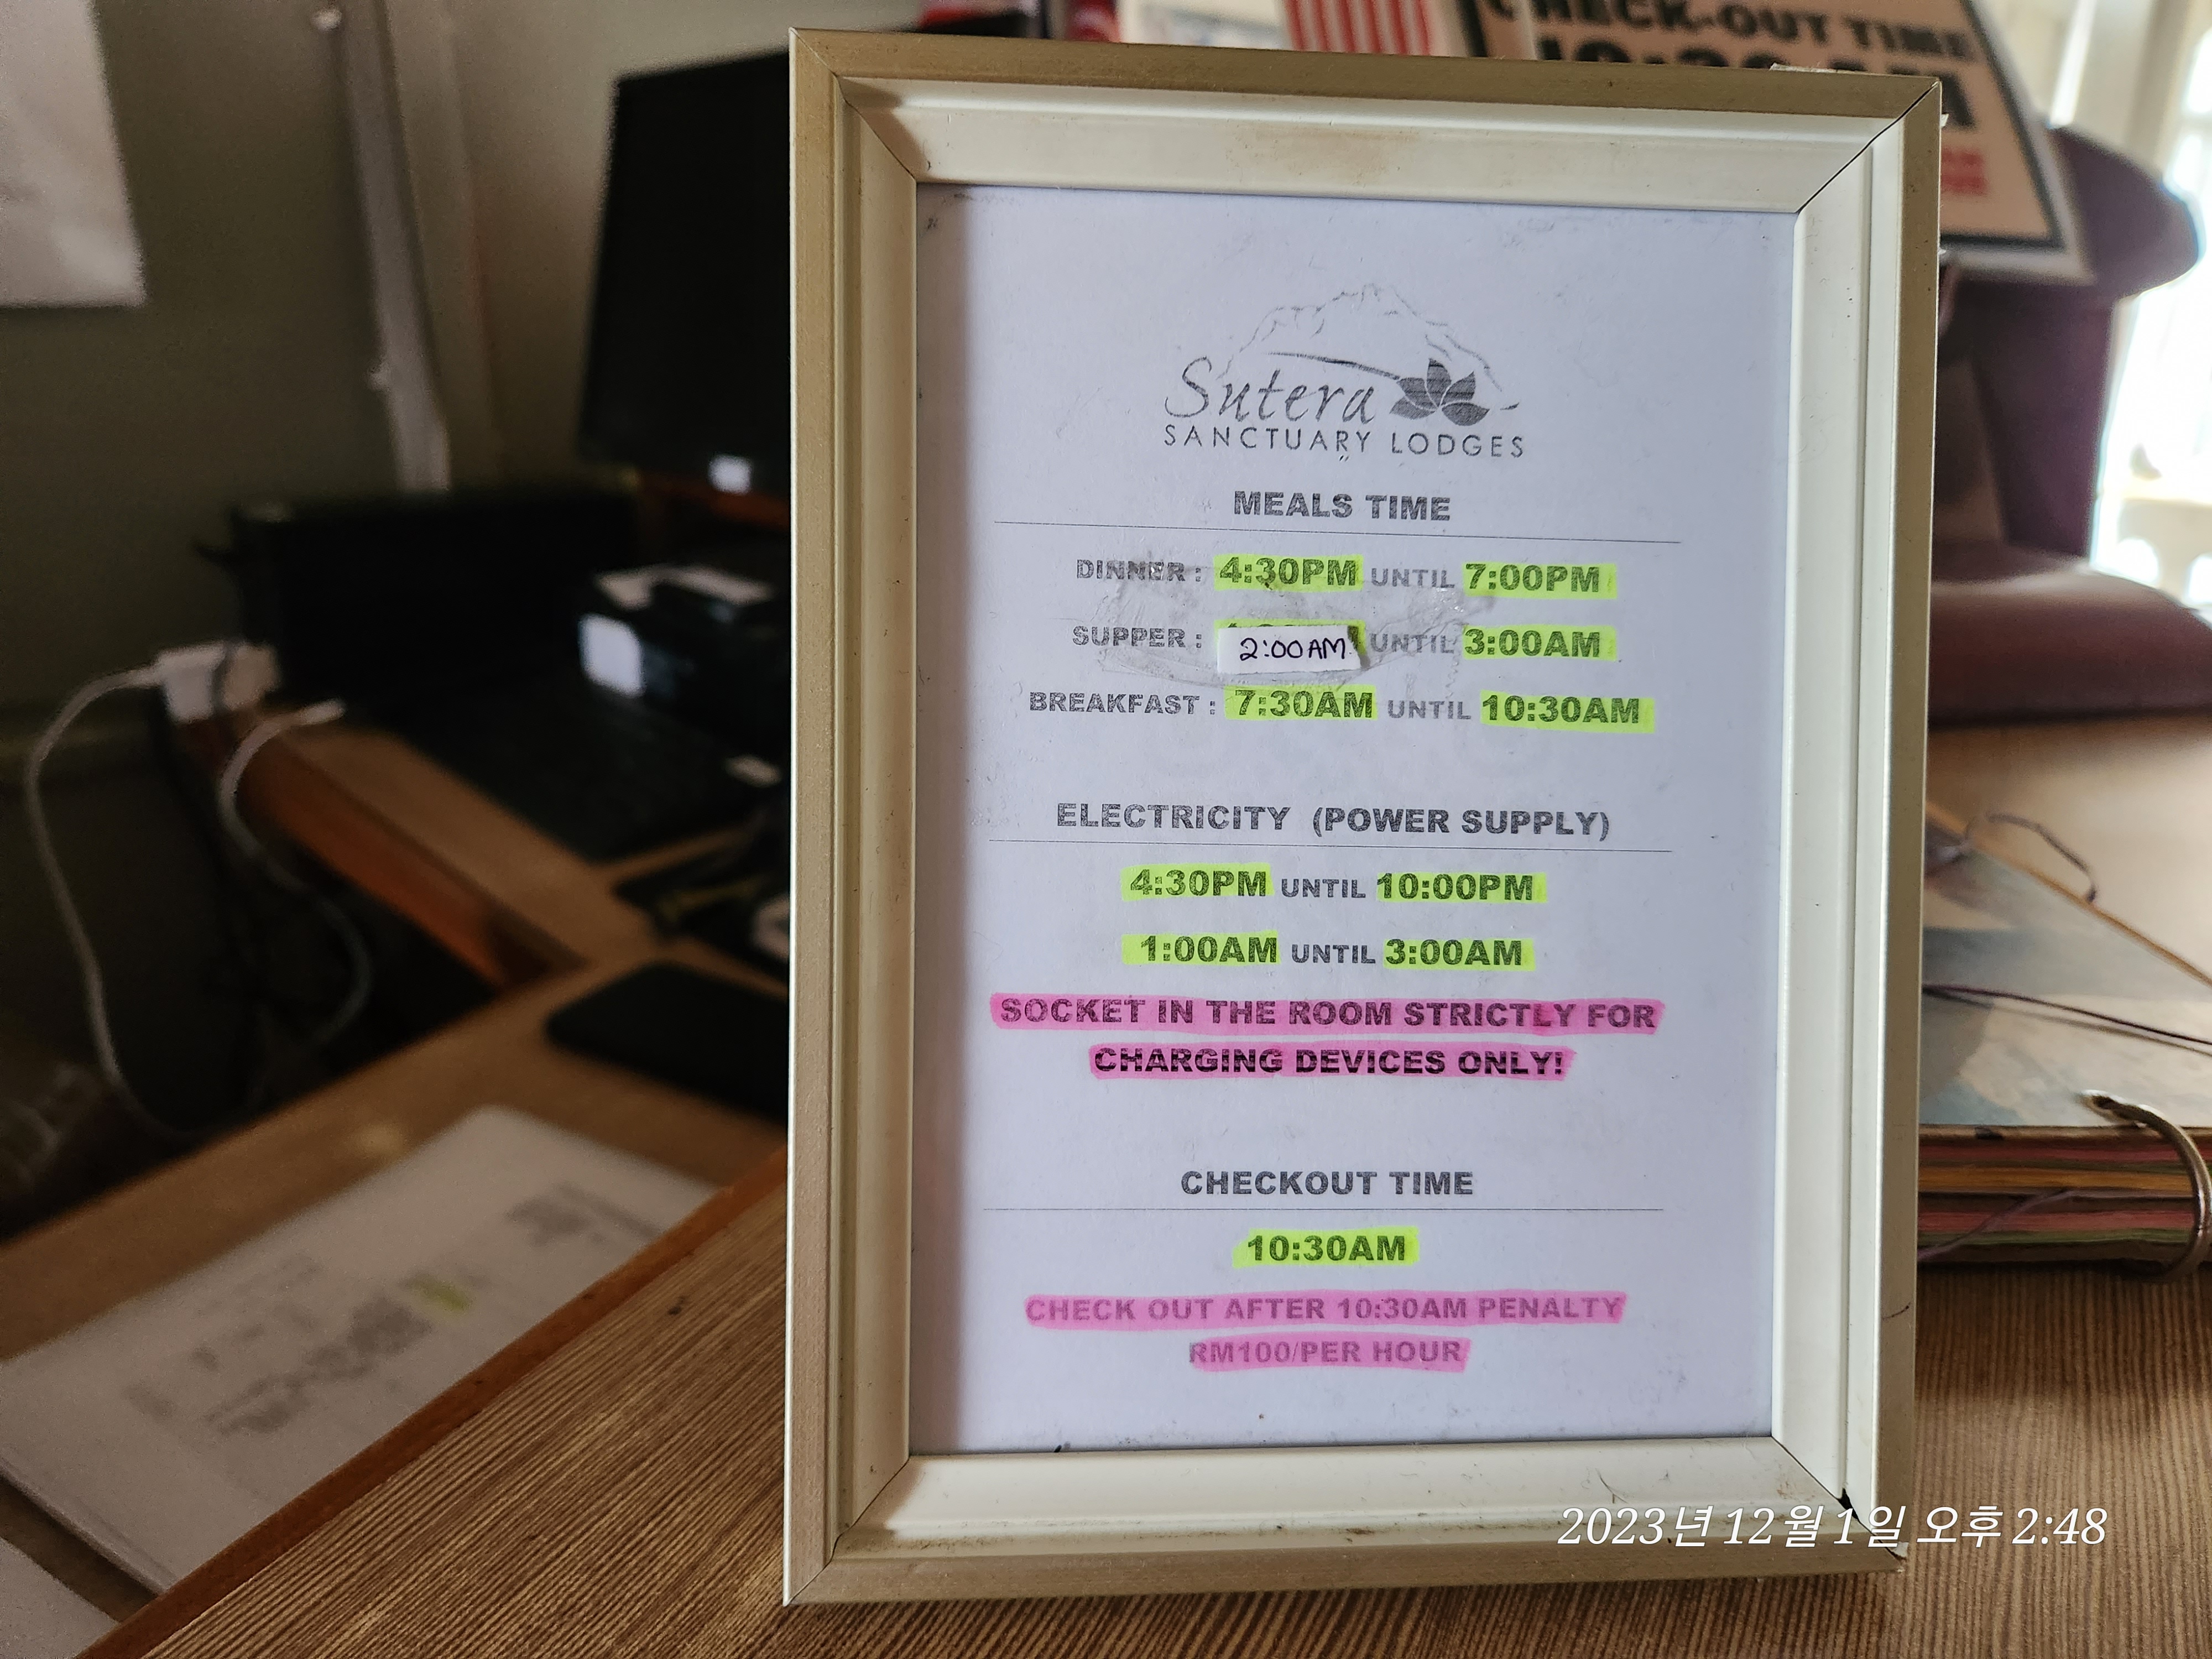 CHECK-OUT TIME
Sutera
SANCTUARY LODGES
MEALS TIME
DINNER : 4:30PM UNTIL 7:00PM
SUPPER : 2:00AM UNTIL 3:00AM
BREAKFAST : 7:30AM UNTIL 10:30AM
ELECTRICITY (POWER SUPPLY)
4:30PM UNTIL 10:00PM
1:00AM UNTIL 3:00AM
SOCKET IN THE ROOM STRICTLY FOR
CHARGING DEVICES ONLY!
CHECKOUT TIME
10:30AM
CHECK OUT AFTER 10:30AM PENALTY
RM100/PER HOUR
2023년 12월 1일 오후 2:48